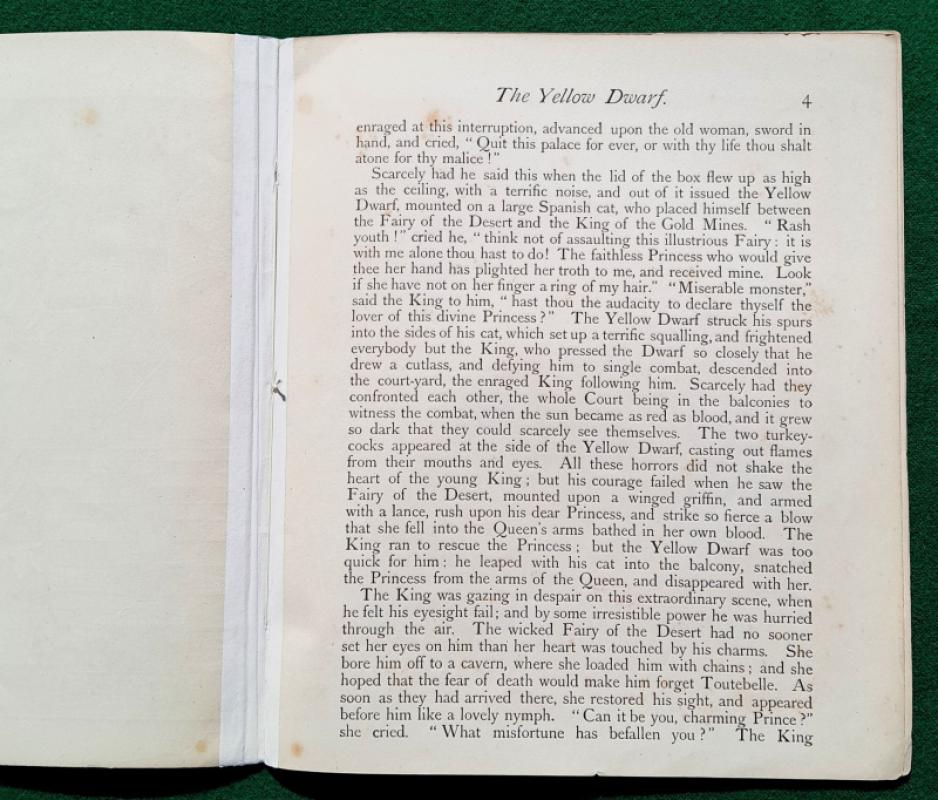 The Yellow Dwarf.
4
enraged at this interruption, advanced upon the old woman, sword in
hand, and cried, “Quit this palace for ever, or with thy life thou shalt
atone for thy malice!”
Scarcely had he said this when the lid of the box flew up as high
as the ceiling, with a terrific noise, and out of it issued the Yellow
Dwarf, mounted on a large Spanish cat, who placed himself between
the Fairy of the Desert and the King of the Gold Mines. “Rash
youth!” cried he, “think not of assaulting this illustrious Fairy: it is
with me alone thou hast to do! The faithless Princess who would give
thee her hand has plighted her troth to me, and received mine. Look
if she have not on her finger a ring of my hair.” “Miserable monster,”
said the King to him, “hast thou the audacity to declare thyself the
lover of this divine Princess?” The Yellow Dwarf struck his spurs
into the sides of his cat, which set up a terrific squalling, and frightened
everybody but the King, who pressed the Dwarf so closely that he
drew a cutlass, and defying him to single combat, descended into
the court-yard, the enraged King following him. Scarcely had they
confronted each other, the whole Court being in the balconies to
witness the combat, when the sun became as red as blood, and it grew
so dark that they could scarcely see themselves. The two turkey-
cocks appeared at the side of the Yellow Dwarf, casting out flames
from their mouths and eyes. All these horrors did not shake the
heart of the young King; but his courage failed when he saw the
Fairy of the Desert, mounted upon a winged griffin, and armed
with a lance, rush upon his dear Princess, and strike so fierce a blow
that she fell into the Queen's arms bathed in her own blood. The
King ran to rescue the Princess; but the Yellow Dwarf was too
quick for him: he leaped with his cat into the balcony, snatched
the Princess from the arms of the Queen, and disappeared with her.
The King was gazing in despair on this extraordinary scene, when
he felt his eyesight fail; and by some irresistible power he was hurried
through the air. The wicked Fairy of the Desert had no sooner
set her eyes on him than her heart was touched by his charms. She
bore him off to a cavern, where she loaded him with chains; and she
hoped that the fear of death would make him forget Toutebelle. As
soon as they had arrived there, she restored his sight, and appeared
before him like a lovely nymph. “Can it be you, charming Prince?”
she cried. “What misfortune has befallen you?” The King